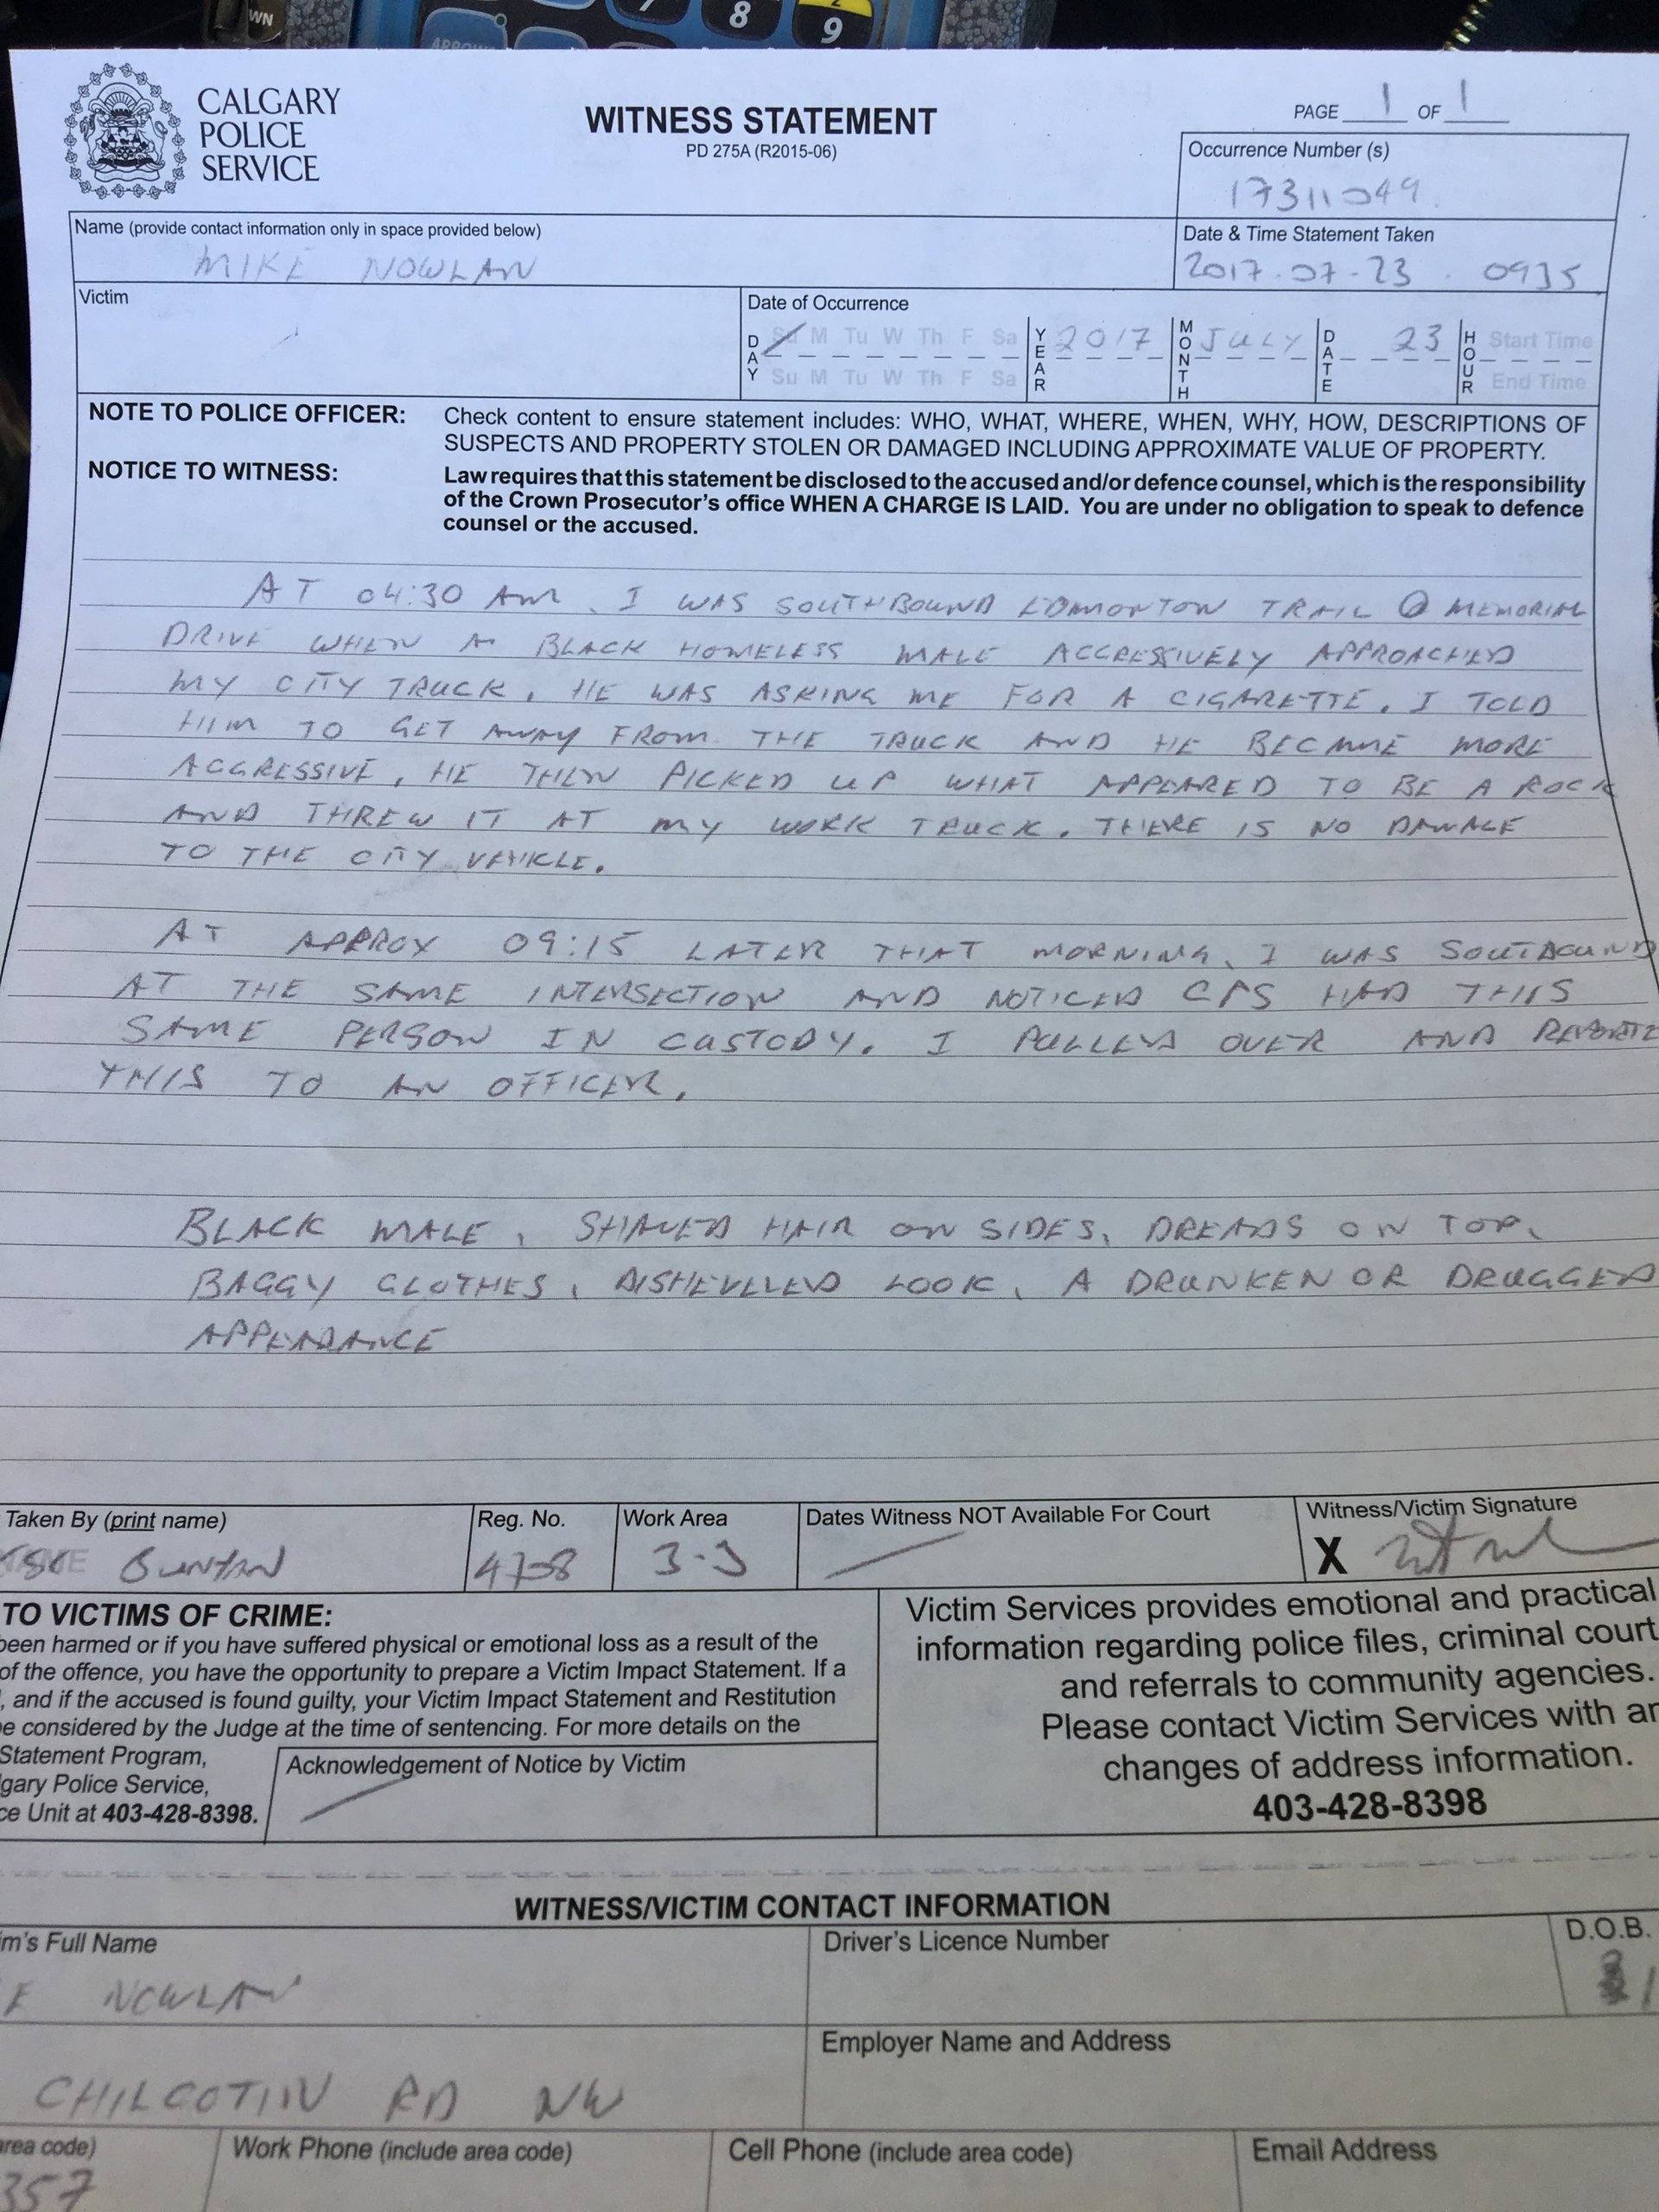 WN
7 8 9
CALGARY
POLICE
SERVICE
WITNESS STATEMENT
PD 275A (R2015-06)
PAGE 1 OF 1
Occurrence Number (s)
17311049.
Name (provide contact information only in space provided below)
MIKE NOWLAN
Date & Time Statement Taken
2017.07-23. 0935
Victim
Date of Occurrence
DAY Su M Tu W Th F Sa YEAR 2017 MONTH JULY DATE 23 HOUR Start Time
Su M Tu W Th F Sa End Time
NOTE TO POLICE OFFICER: Check content to ensure statement includes: WHO, WHAT, WHERE, WHEN, WHY, HOW, DESCRIPTIONS OF
SUSPECTS AND PROPERTY STOLEN OR DAMAGED INCLUDING APPROXIMATE VALUE OF PROPERTY.
NOTICE TO WITNESS: Law requires that this statement be disclosed to the accused and/or defence counsel, which is the responsibility
of the Crown Prosecutor's office WHEN A CHARGE IS LAID. You are under no obligation to speak to defence
counsel or the accused.
AT 04:30 AM, I WAS SOUTHBOUND EDMONTON TRAIL @ MEMORIAL
DRIVE WHEN A BLACK HOMELESS MALE AGGRESSIVELY APPROACHED
MY CITY TRUCK. HE WAS ASKING ME FOR A CIGARETTE. I TOLD
HIM TO GET AWAY FROM THE TRUCK AND HE BECAME MORE
AGGRESSIVE, HE THEN PICKED UP WHAT APPEARED TO BE A ROCK
AND THREW IT AT MY WORK TRUCK. THERE IS NO DAMAGE
TO THE CITY VEHICLE.
AT APPROX 09:15 LATER THAT MORNING, I WAS SOUTHBOUND
AT THE SAME INTERSECTION AND NOTICED CPS HAD THIS
SAME PERSON IN CUSTODY. I PULLED OVER AND
THIS TO AN OFFICER.
BLACK MALE, SHAVED HAIR ON SIDES, DREADS ON TOP,
BAGGY CLOTHES, DISHEVELLED LOOK, A DRUNKEN OR DRUGGED
APPEARANCE
Taken By (print name)
Reg. No.
Work Area
3-3
Dates Witness NOT Available For Court
Witness/Victim Signature
X
TO VICTIMS OF CRIME:
been harmed or if you have suffered physical or emotional loss as a result of the
of the offence, you have the opportunity to prepare a Victim Impact Statement. If a
, and if the accused is found guilty, your Victim Impact Statement and Restitution
be considered by the Judge at the time of sentencing. For more details on the
Statement Program,
gary Police Service,
ce Unit at 403-428-8398.
Acknowledgement of Notice by Victim
Victim Services provides emotional and practical
information regarding police files, criminal court
and referrals to community agencies.
Please contact Victim Services with an
changes of address information.
403-428-8398
WITNESS/VICTIM CONTACT INFORMATION
im's Full Name
E NOWLAN
Driver's Licence Number
D.O.B.
CHILCOTIN RD NW
Employer Name and Address
area code)
357
Work Phone (include area code)
Cell Phone (include area code)
Email Address